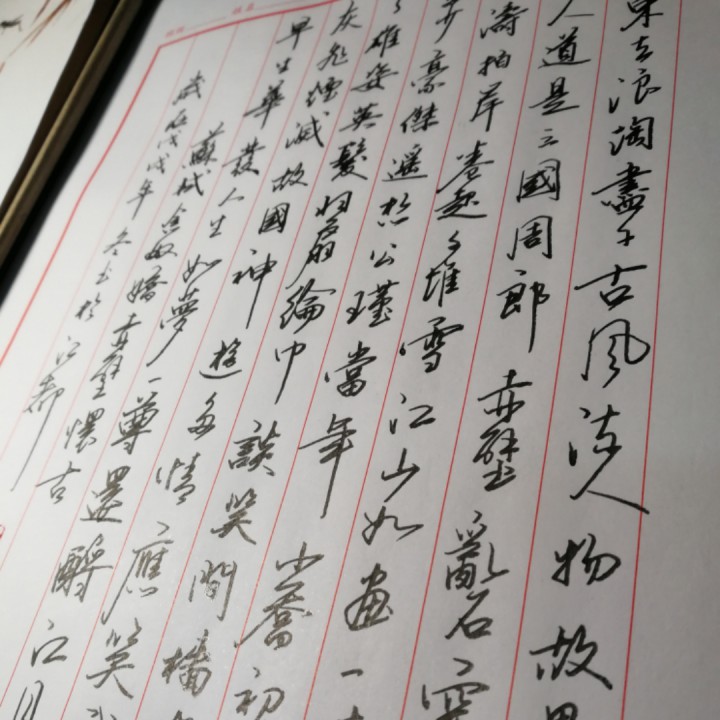 東去浪淘盡千古風流人物故
人道是三國周郎赤壁亂石穿
濤拍岸卷起千堆雪江山如畫一
豪傑遙想公瑾當年小喬初
雄姿英髮羽扇綸巾談笑間檣
灰飛煙滅故國神遊多情應笑
早生華發人生如夢一尊還酹江月
蘇軾念奴嬌赤壁懷古
歲在戊戌年冬書於江都